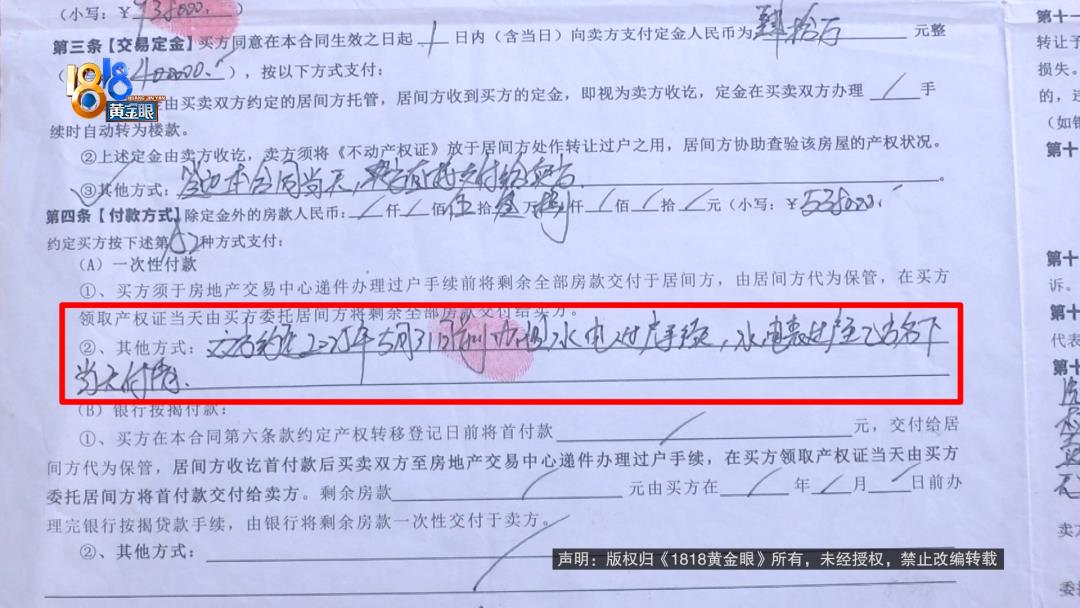 （小写：￥938000.）
第三条【交易定金】买方同意在本合同生效之日起 1 日内（含当日）向卖方支付定金人民币为 肆拾万 元整
（ 400000. ），按以下方式支付：
1818
黄金眼
由买卖双方约定的居间方托管，居间方收到买方的定金，即视为卖方收讫，定金在买卖双方办理 / 手
续时自动转为楼款。
②上述定金由卖方收讫，卖方须将《不动产权证》放于居间方处作转让过户之用，居间方协助查验该房屋的产权状况。
③其他方式：签定本合同当天，直接支付给卖方。
第四条【付款方式】除定金外的房款人民币：/ 仟 / 佰 伍 拾 叁 万 捌 仟 / 佰 / 拾 / 元（小写：￥538000.
约定买方按下述第 种方式支付：
（A）一次性付款
①、买方须于房地产交易中心递件办理过户手续前将剩余全部房款交付于居间方，由居间方代为保管，在买方
领取产权证当天由买方委托居间方将剩余全部房款交付给卖方。
②、其他方式：双方约定2025年5月31日前办理水电过户手续，水电表过户至乙方名下
当天付清.
（B）银行按揭付款：
①、买方在本合同第六条款约定产权转移登记日前将首付款 / 元，交付给居
间方代为保管，居间方收讫首付款后买卖双方至房地产交易中心递件办理过户手续，在买方领取产权证当天由买方
委托居间方将首付款交付给卖方。剩余房款 / 元由买方在 / 年 / 月 / 日前办
理完银行按揭贷款手续，由银行将剩余房款一次性交付于卖方。
②、其他方式：
声明：版权归《1818黄金眼》所有，未经授权，禁止改编转载
第十一
转让于
损失。
的，违
（如银
第十
第十
诉。
第十
代表
第十
卖方
委托